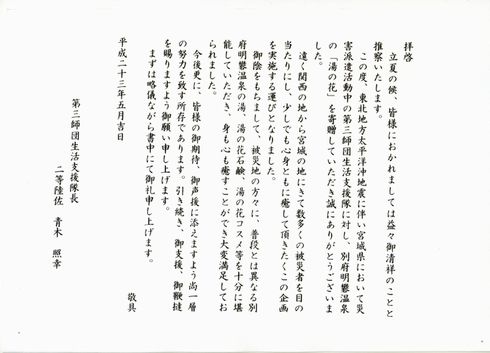 拝啓
立夏の候、皆様におかれましては益々御清祥のことと
推察いたします。
この度、東北地方太平洋沖地震に伴い宮城県において災
害派遣活動中の第三師団生活支援隊に対し、別府明礬温泉
の「湯の花」を寄贈していただき誠にありがとうございま
した。
遠く関西の地から宮城の地にきて数多くの被災者を目の
当たりにし、少しでも心身ともに癒して頂きたくこの企画
を実施する運びとなりました。
御陰をもちまして、被災地の方々に、普段とは異なる別
府明礬温泉の湯、湯の花石鹸、湯の花コスメ等を十分に堪
能していただき、身も心も癒すことができ大変満足してお
られました。
今後更に、皆様の御期待、御声援に添えますよう尚一層
の努力を致す所存であります。引き続き、御支援、御鞭撻
を賜りますよう御願い申し上げます。
まずは略儀ながら書中にて御礼申し上げます。
敬具
平成二十三年五月吉日
第三師団生活支援隊長
二等陸佐 青木 照幸